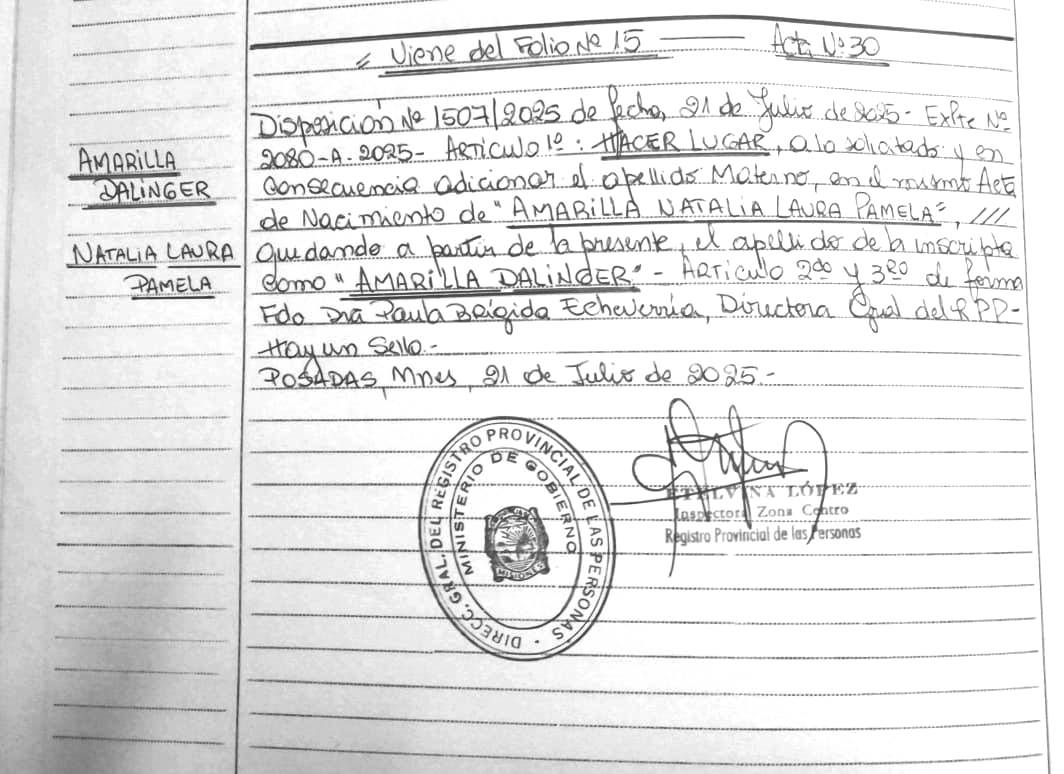 " Viene del Folio Nº 15 ——— Acta Nº 30
Disposición Nº 1507/2025 de fecha, 21 de Julio de 2025- Expte Nº
2080-A-2025- Articulo 1º: HACER LUGAR, a lo solicitado y en
Consecuencia adicionar el apellido Materno, en el mismo Acta
de Nacimiento de "AMARILLA NATALIA LAURA PAMELA", ///
Quedando a partir de la presente, el apellido de la inscripta
Como "AMARILLA DALINDER"- Articulo 2do y 3ro de forma
Fdo Dra Paula Brígida Echeverría, Directora Gral del RPP-
Hay un Sello.-
POSADAS, Mnes, 21 de Julio de 2025.-
AMARILLA
DALINGER
NATALIA LAURA
PAMELA
DIRECC. GRAL. DEL REGISTRO PROVINCIAL DE LAS PERSONAS
MINISTERIO DE GOBIERNO
MISIONES
ETELVINA LÓPEZ
Inspectora Zona Centro
Registro Provincial de las Personas